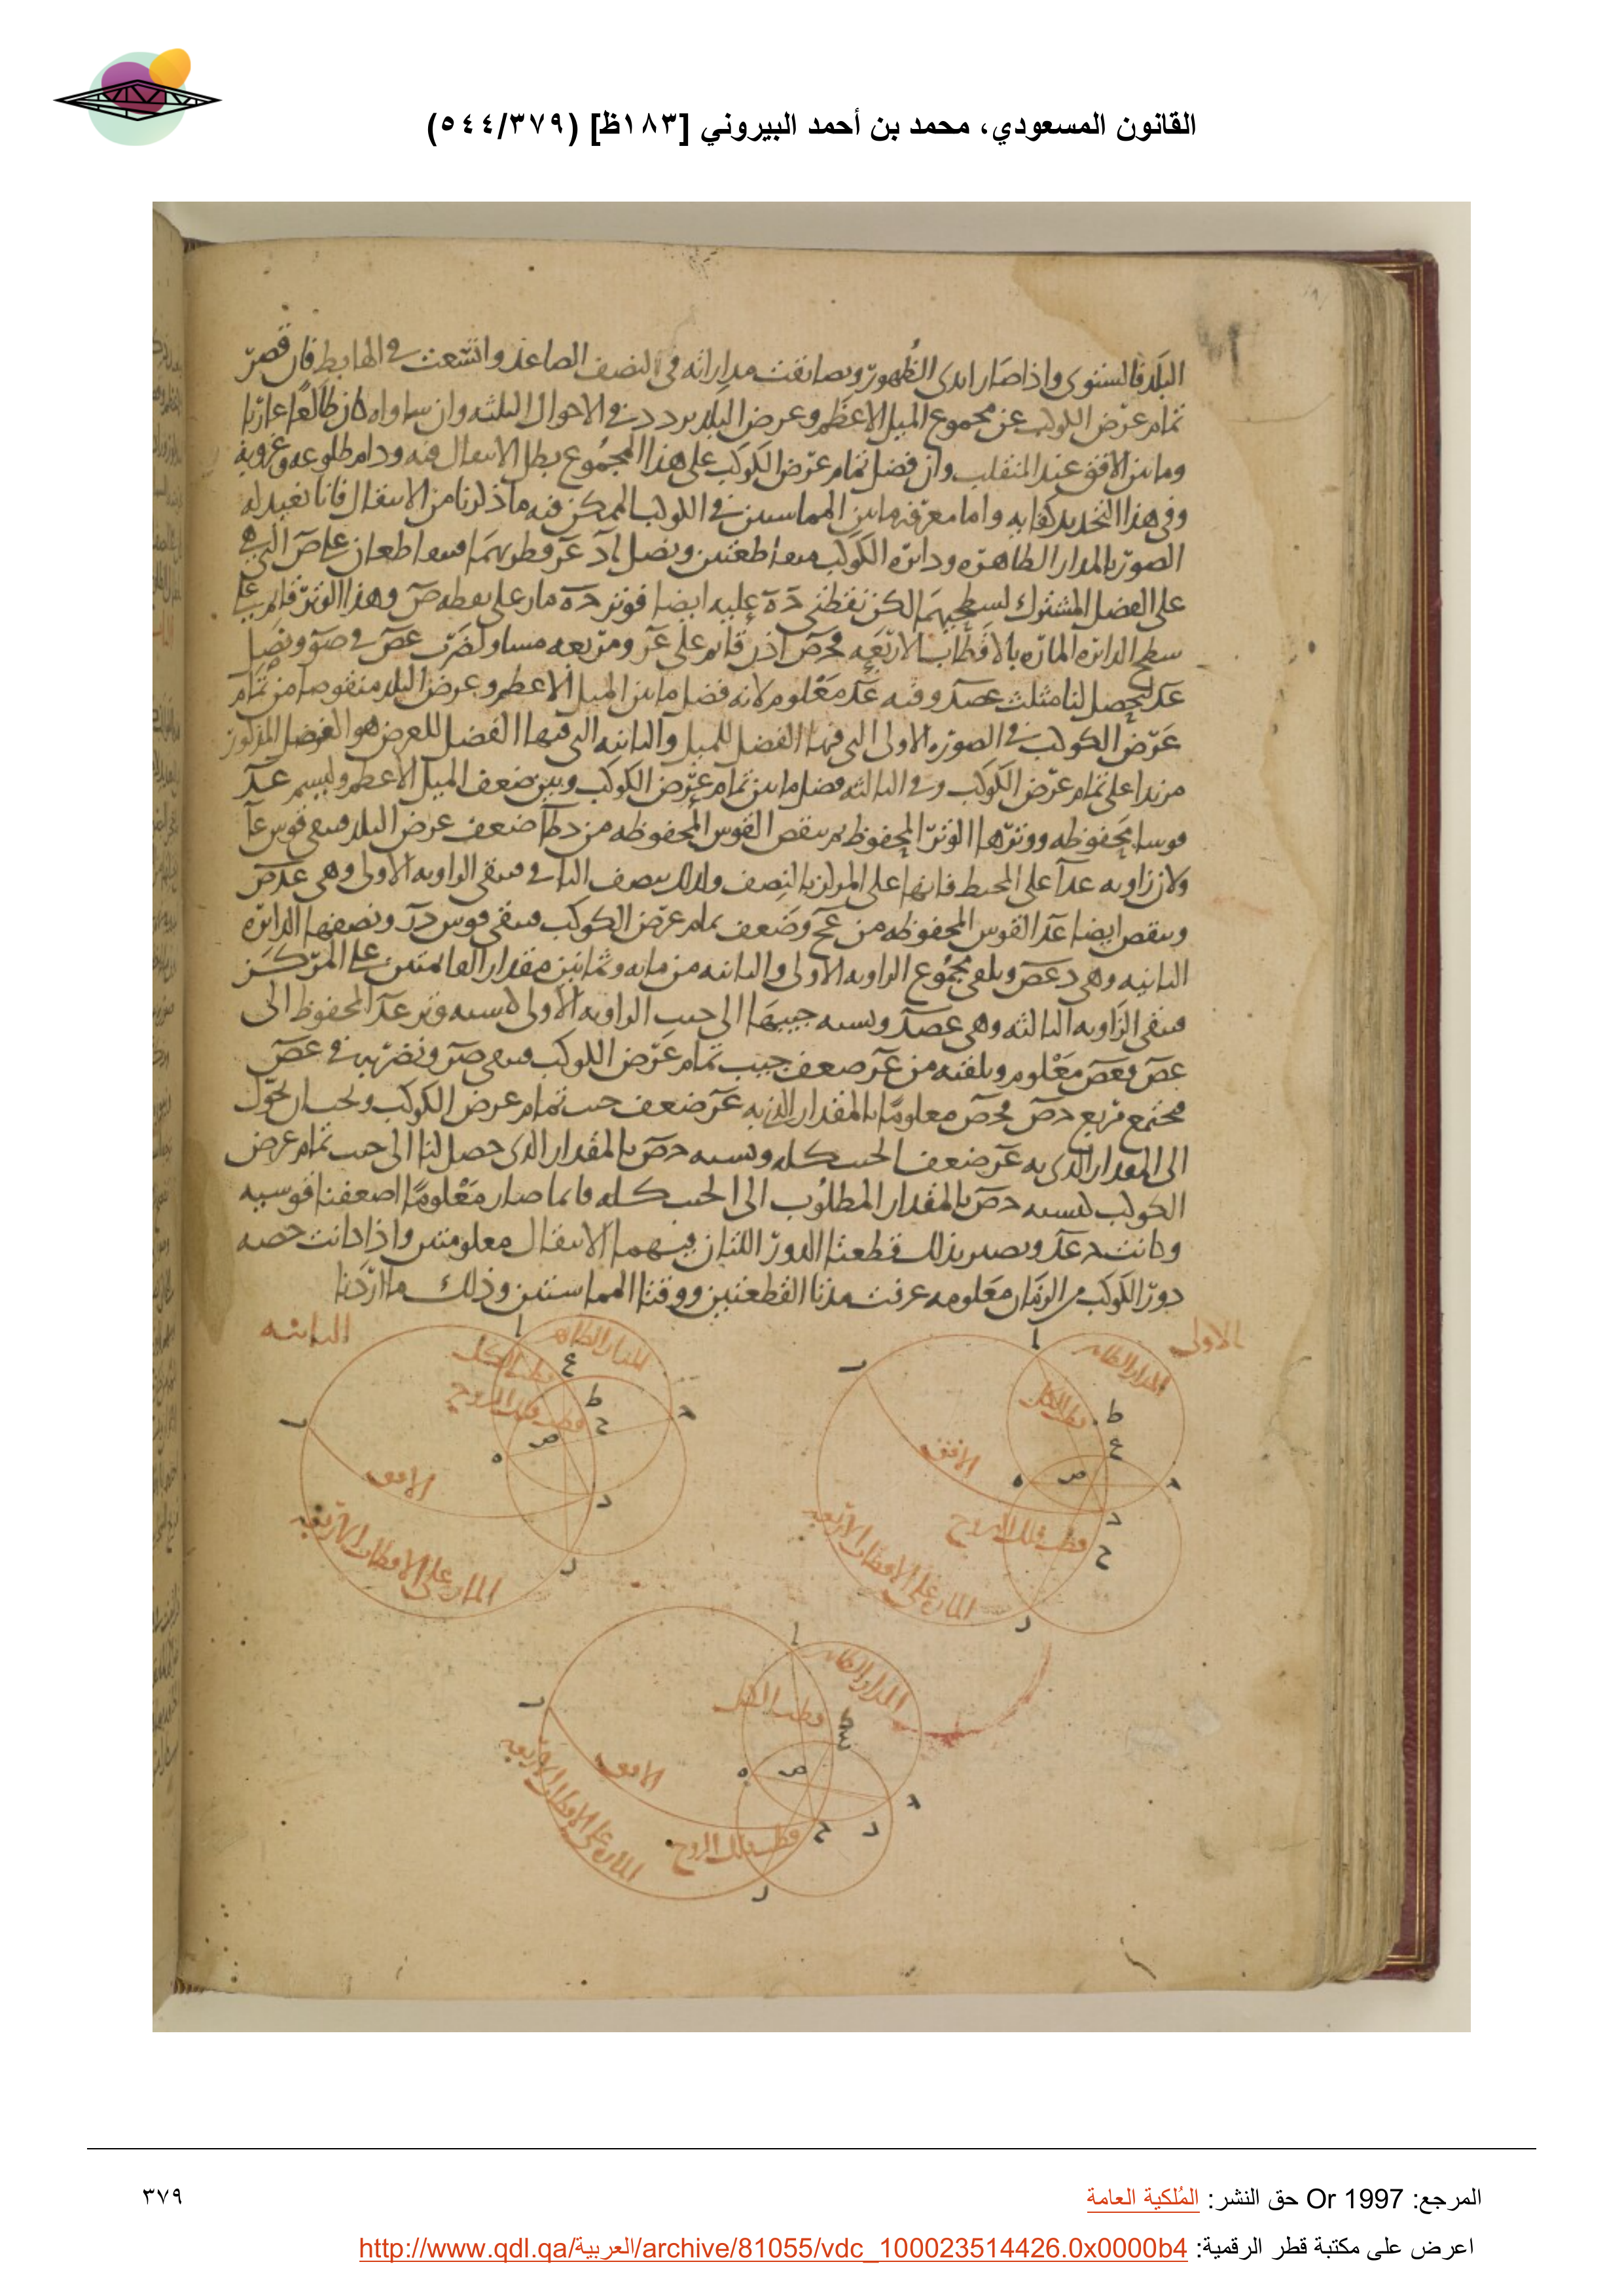 القانون المسعودي، محمد بن أحمد البيروني [١٨٣ظ] (٥٤٤/٣٧٩)
البلد فالستوى واذا صار ابدى الظهور وتضايقت مداراته فى النصف الصاعد واتسعت فى الهابط فان قصر
تمام عرض الكوكب عن مجموع الميل الاعظم وعرض البلد تردد فى الاحوال الثلثه وان ساواه كان طالعا غاربا
وماس الافق عند المنقلب وان فضل تمام عرض الكوكب على هذا المجموع بطل الانتقال فيه ودام طلوعه وغروبه
وفى هذا التحديد كفايه واما معرفه ما بين المماستين فى الكوكب الممكن فيه ما ذكرنا من الانتقال فانا نعيد له
الصور بالمدار الظاهر ه ودائره الكوكب متقاطعتين ونصل اد عر قطريهما متقاطعان على ص التى هى
على الفصل المشترك لسطحيهما لكن نقطتى حه عليه ايضا فوتر حه مار على نقطه ص وهذا الوتر قائم على
سطح الدائره الماره بالاقطاب الاربعه فحص اذن قائم على عر ومربعه مساو لضرب عص فى صر ونصل
عد ليحصل لنا مثلث عصد وفيه عد معلوم لانه فضل ما بين الميل الاعظم وعرض البلد منقوصا من تمام
عرض الكوكب فى الصوره الاولى التى فيها الفضل للميل والثانيه التى فيها الفضل للعرض هو الفضل المذكور
مزيدا على تمام عرض الكوكب وفى الثالثه فضل ما بين تمام عرض الكوكب وبين ضعف الميل الاعظم وليسم عد
قوسا محفوظه ووترها الوتر المحفوظ ثم ننقص القوس المحفوظه من دطا ضعف عرض البلد فتبقى قوس عا
ولان زاويه عدا على المحيط فانها على المركز بالنصف ولذلك ننصف الباقى فتبقى الزاويه الاولى وهى عدص
وننقص ايضا عد القوس المحفوظه من عحر ضعف تمام عرض الكوكب فتبقى قوس در ونصفها الزاويه
الثانيه وهى دعص ونلقى مجموع الزاويه الاولى والثانيه من مائه وثمانين مقدار القائمتين على المركز
فتبقى الزاويه الثالثه وهى عصد ونسبه جيبها الى جيب الزاويه الاولى كنسبه وتر عد المحفوظ الى
عص فعص معلوم ونلقيه من عر ضعف جيب تمام عرض الكوكب فتبقى صر ونضربه فى عص
فيجتمع مربع حص فحص معلوما بالمقدار الذى به عر ضعف جيب تمام عرض الكوكب ونحتاج ان نحول
الى المقدار الذى به عر ضعف الجيب كله ونسبه حص بالمقدار الذى حصل لنا الى جيب تمام عرض
الكوكب كنسبه حص بالمقدار المطلوب الى الجيب كله فاذا صار معلوما اضعفنا قوسه
وكانت حعه ونصير بذلك قطعتا الدور اللتان فيهما الانتقال معلومتين واذا كانت حصه
دور الكوكب من الزمان معلومه عرفت مدتا القطعتين ووقتا المماستين وذلك ما اردنا
الاولى
ا
المدار الظاهر
قطب الكل
ب
ط
ع
الافق
ص
ه
ح
د
قطب فلك البروج
ح
الماره على الاقطاب الاربعه
ر
الثانيه
ا
المدار الظاهر
قطب الكل
ع
ط
قطب فلك البروج
ح
ص
ه
ب
الافق
د
ر
الماره على الاقطاب الاربعه
ا
المدار الظاهر
قطب الكل
ب
ط
ع
الافق
ص
ه
ح
د
ح
قطب فلك البروج
الماره على الاقطاب الاربعه
ر
المرجع: Or 1997 حق النشر: المُلكية العامة
٣٧٩
اعرض على مكتبة قطر الرقمية: http://www.qdl.qa/العربية/archive/81055/vdc_100023514426.0x0000b4